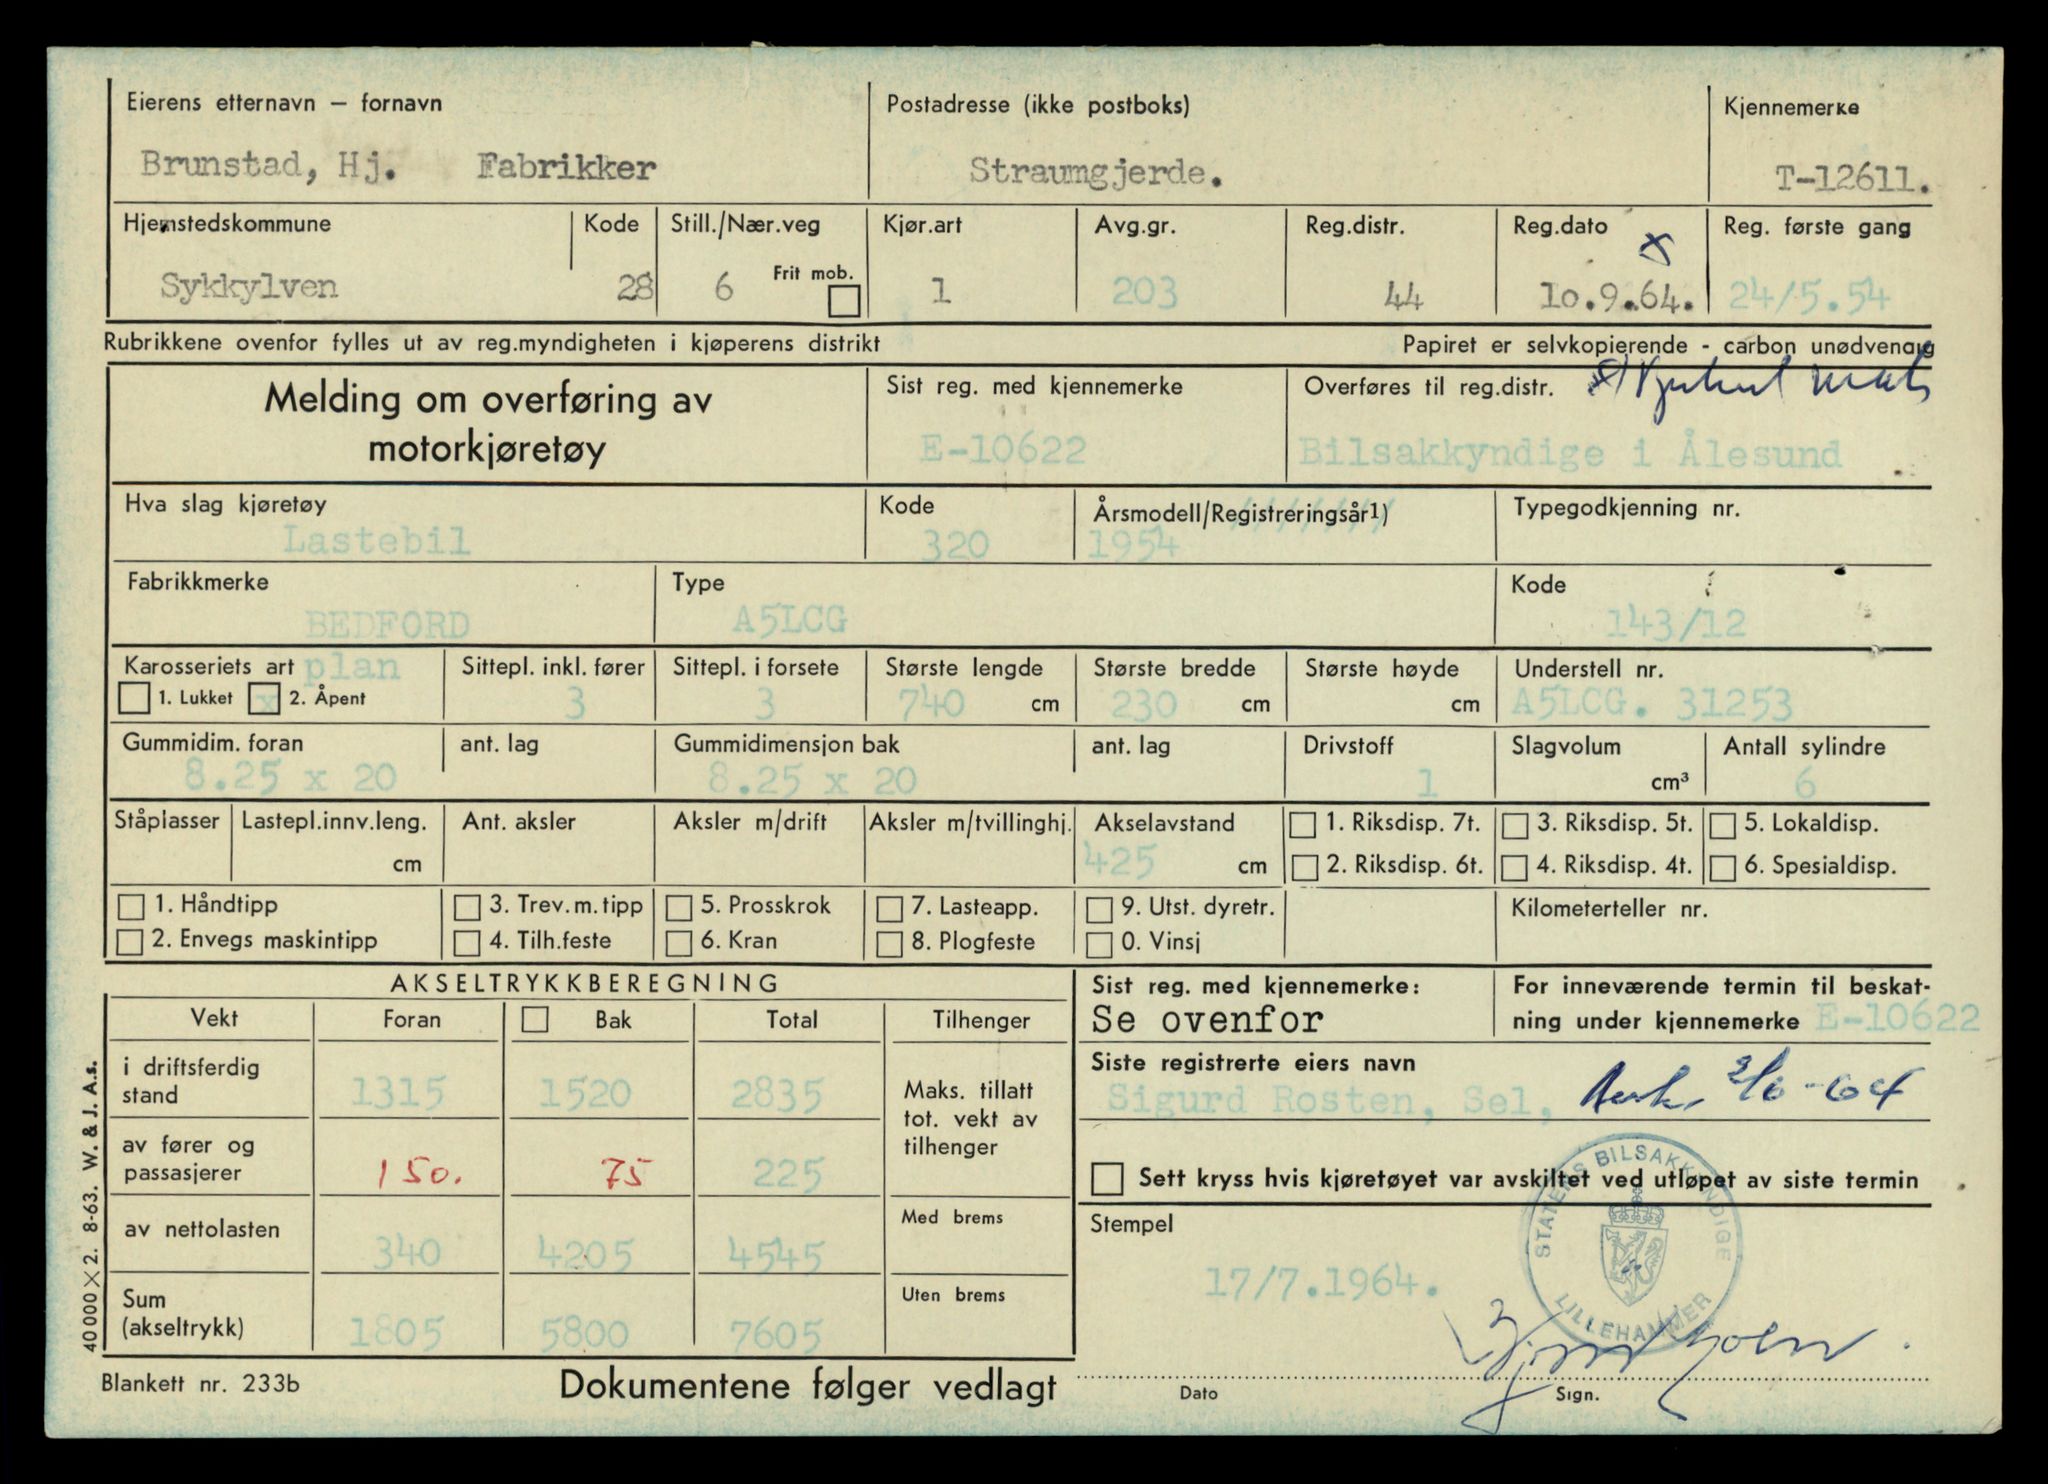 Eierens etternavn – fornavn
Postadresse (ikke postboks)
Kjennemerke
Brunstad, Hj. Fabrikker
Straumgjerde.
T-12611.
Hjemstedskommune
Kode
Still./Nær.veg
Kjør.art
Avg.gr.
Reg.distr.
Reg.dato
Reg. første gang
Sykkylven
28
6
Frit mob.
1
203
44
10.9.64.
24/5.54
Rubrikkene ovenfor fylles ut av reg.myndigheten i kjøperens distrikt
Papiret er selvkopierende - carbon unødvendig
Melding om overføring av
motorkjøretøy
Sist reg. med kjennemerke
E-10622
Overføres til reg.distr.
Bilsakkyndige i Ålesund
Hva slag kjøretøy
Lastebil
Kode
320
Årsmodell/Registreringsår1)
1954
Typegodkjenning nr.
Fabrikkmerke
BEDFORD
Type
A5LCG
Kode
143/12
Karosseriets art plan
1. Lukket x 2. Åpent
Sittepl. inkl. fører
3
Sittepl. i forsete
3
Største lengde
740 cm
Største bredde
230 cm
Største høyde
cm
Understell nr.
A5LCG. 31253
Gummidim. foran
8.25 x 20
ant. lag
Gummidimensjon bak
8.25 x 20
ant. lag
Drivstoff
1
Slagvolum
cm³
Antall sylindre
6
Ståplasser
Lastepl.innv.leng.
cm
Ant. aksler
Aksler m/drift
Aksler m/tvillinghj.
Akselavstand
425 cm
1. Riksdisp. 7t.
3. Riksdisp. 5t.
5. Lokaldisp.
2. Riksdisp. 6t.
4. Riksdisp. 4t.
6. Spesialdisp.
1. Håndtipp
3. Trev. m. tipp
5. Prosskrok
7. Lasteapp.
9. Utst. dyretr.
Kilometerteller nr.
2. Envegs maskintipp
4. Tilh.feste
6. Kran
8. Plogfeste
0. Vinsj
AKSELTRYKKBEREGNING
Vekt
Foran
Bak
Total
Tilhenger
i driftsferdig
stand
1315
1520
2835
Maks. tillatt
tot. vekt av
tilhenger
av fører og
passasjerer
150.
75
225
av nettolasten
340
4205
4545
Med brems
Sum
(akseltrykk)
1805
5800
7605
Uten brems
Sist reg. med kjennemerke:
Se ovenfor
For inneværende termin til beskat-
ning under kjennemerke E-10622
Siste registrerte eiers navn
Sigurd Rosten, Sel,
Sett kryss hvis kjøretøyet var avskiltet ved utløpet av siste termin
Stempel
17/7.1964.
STATENS BILSAKKYNDIGE
LILLEHAMMER
Dato
Sign.
40 000 × 2. 8-63. W. & J. A.s.
Blankett nr. 233b
Dokumentene følger vedlagt